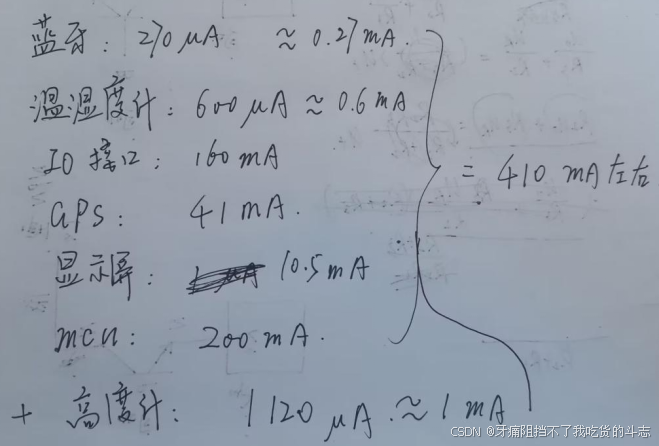 蓝牙: 270 μA ≈ 0.27mA.
温湿度计: 600 μA ≈ 0.6 mA
IO 接口: 160 mA
GPS: 41 mA.
显示屏: 10.5 mA
= 410 mA 左右
MCU: 200 mA.
+ 高度计: 1120 μA ≈ 1 mA
CSDN @牙痛阻挡不了我吃货的斗志